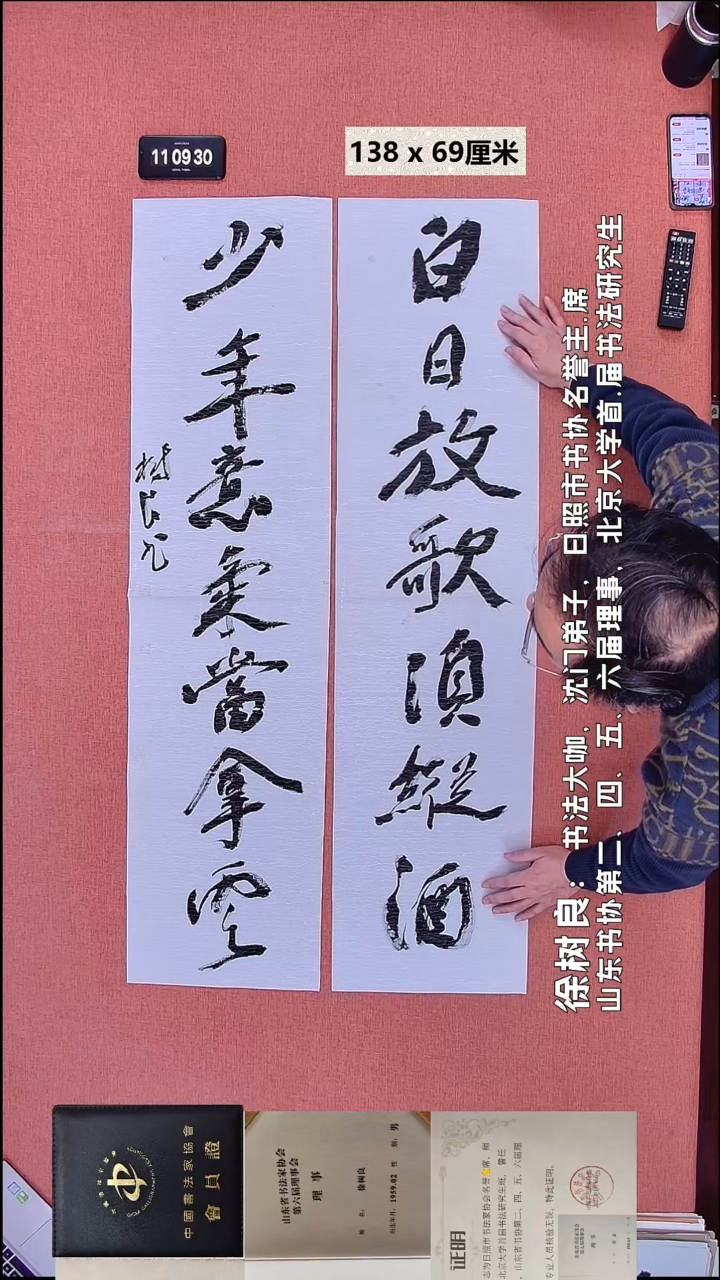 11 09 30
138 x 69厘米
白日放歌須縱酒
少年意氣當拿雲
樹良九
徐树良：书法大咖，沈门弟子，日照市书协名誉主.席
山东书协第二、四、五、六届理事，北京大学首.届书法研究生
中國書法家協會
會員證
山东省书法家协会
第六届理事会
理 事
姓 名：徐树良
出生年月：1959.02 性 别：男
证明
志为日照市书法家协会名誉主席，师
北京大学首届书法研究生班，曾任
，山东省书协第二、四、五、六届理
专业人员核验无误，特此证明。